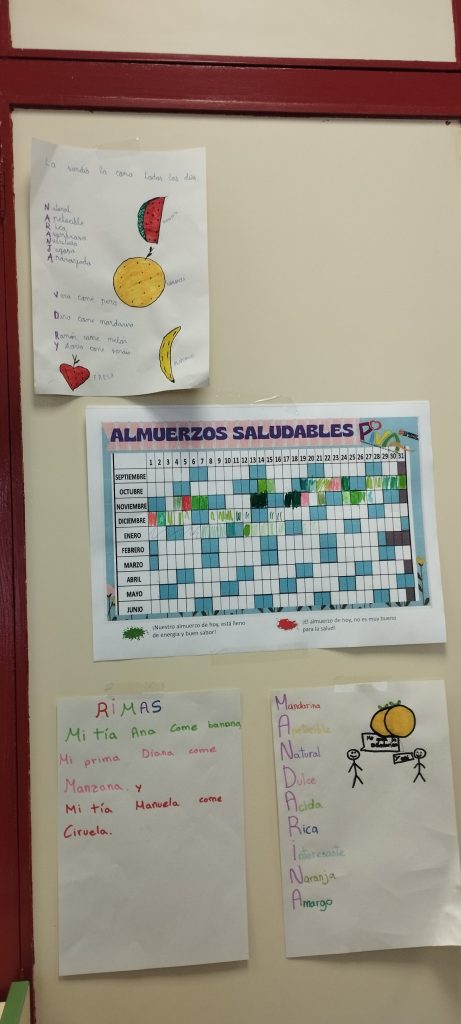 La sandía la como todos los días.
Natural
Apetecible
Rica
Asombrosa
Nutritiva
Jugosa
Anaranjada
Vera come pera
Dina come mandarina
Ramón come melón
y María come sandía
FRESA
ALMUERZOS SALUDABLES
1 2 3 4 5 6 7 8 9 10 11 12 13 14 15 16 17 18 19 20 21 22 23 24 25 26 27 28 29 30 31
SEPTIEMBRE
OCTUBRE
NOVIEMBRE
DICIEMBRE
ENERO
FEBRERO
MARZO
ABRIL
MAYO
JUNIO
¡Nuestro almuerzo de hoy, está lleno
de energía y buen sabor!
¡El almuerzo de hoy, no es muy bueno
para la salud!
RIMAS
Mi tía Ana come banana,
Mi prima Diana come
Manzana. y
Mi tía Manuela come
Ciruela.
Mandarina
Apetecible
Natural
Dulce
Acida
Rica
Interesante
Naranja
Amargo